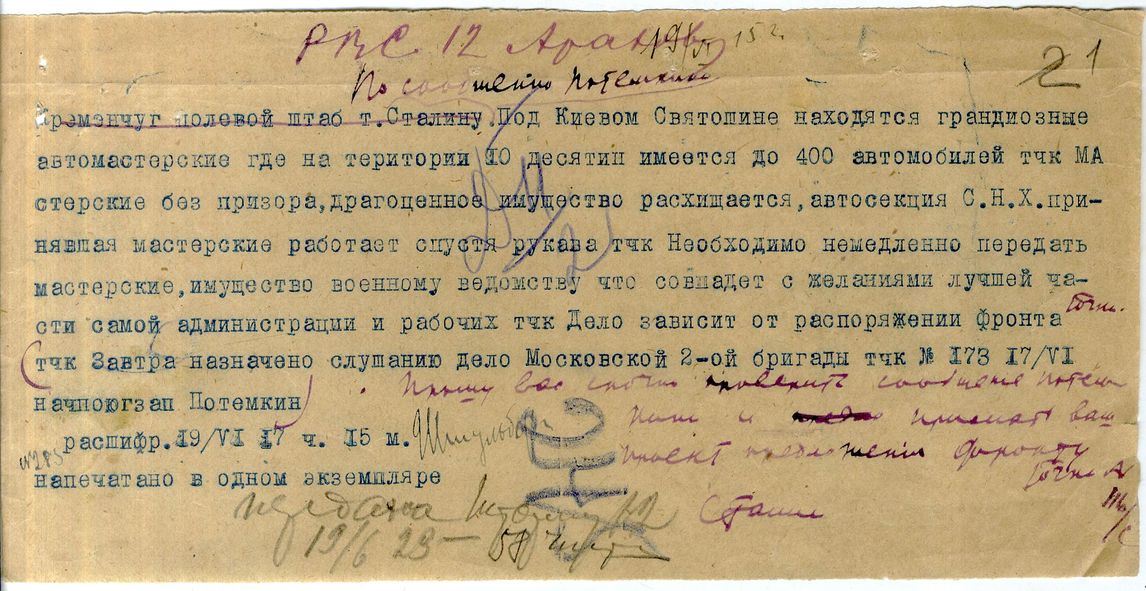 РВС 12 Аралову
По сообщению Потемкина
21
Кременчуг полевой штаб т.Сталину.Под Киевом Святошине находятся грандиозные
автомастерские где на територии 10 десятин имеется до 400 автомобилей тчк МА
стерские без призора,драгоценное имущество расхищается,автосекция С.Н.Х.при-
нявшая мастерские работает спустя рукава тчк Необходимо немедленно передать
мастерские,имущество военному ведомству что совпадет с желаниями лучшей ча-
сти самой администрации и рабочих тчк Дело зависит от распоряжении фронта
тчк Завтра назначено слушанию дело Московской 2-ой бригады тчк № 173 17/VI
начпоюгзап Потемкин
Прошу вас срочно проверить сообщение Потем
кина и прислать ваш
проект предложения фронту
расшифр.19/VI 17 ч. 15 м.
напечатано в одном экземпляре
Сталин
передана
19/6 23 — 58